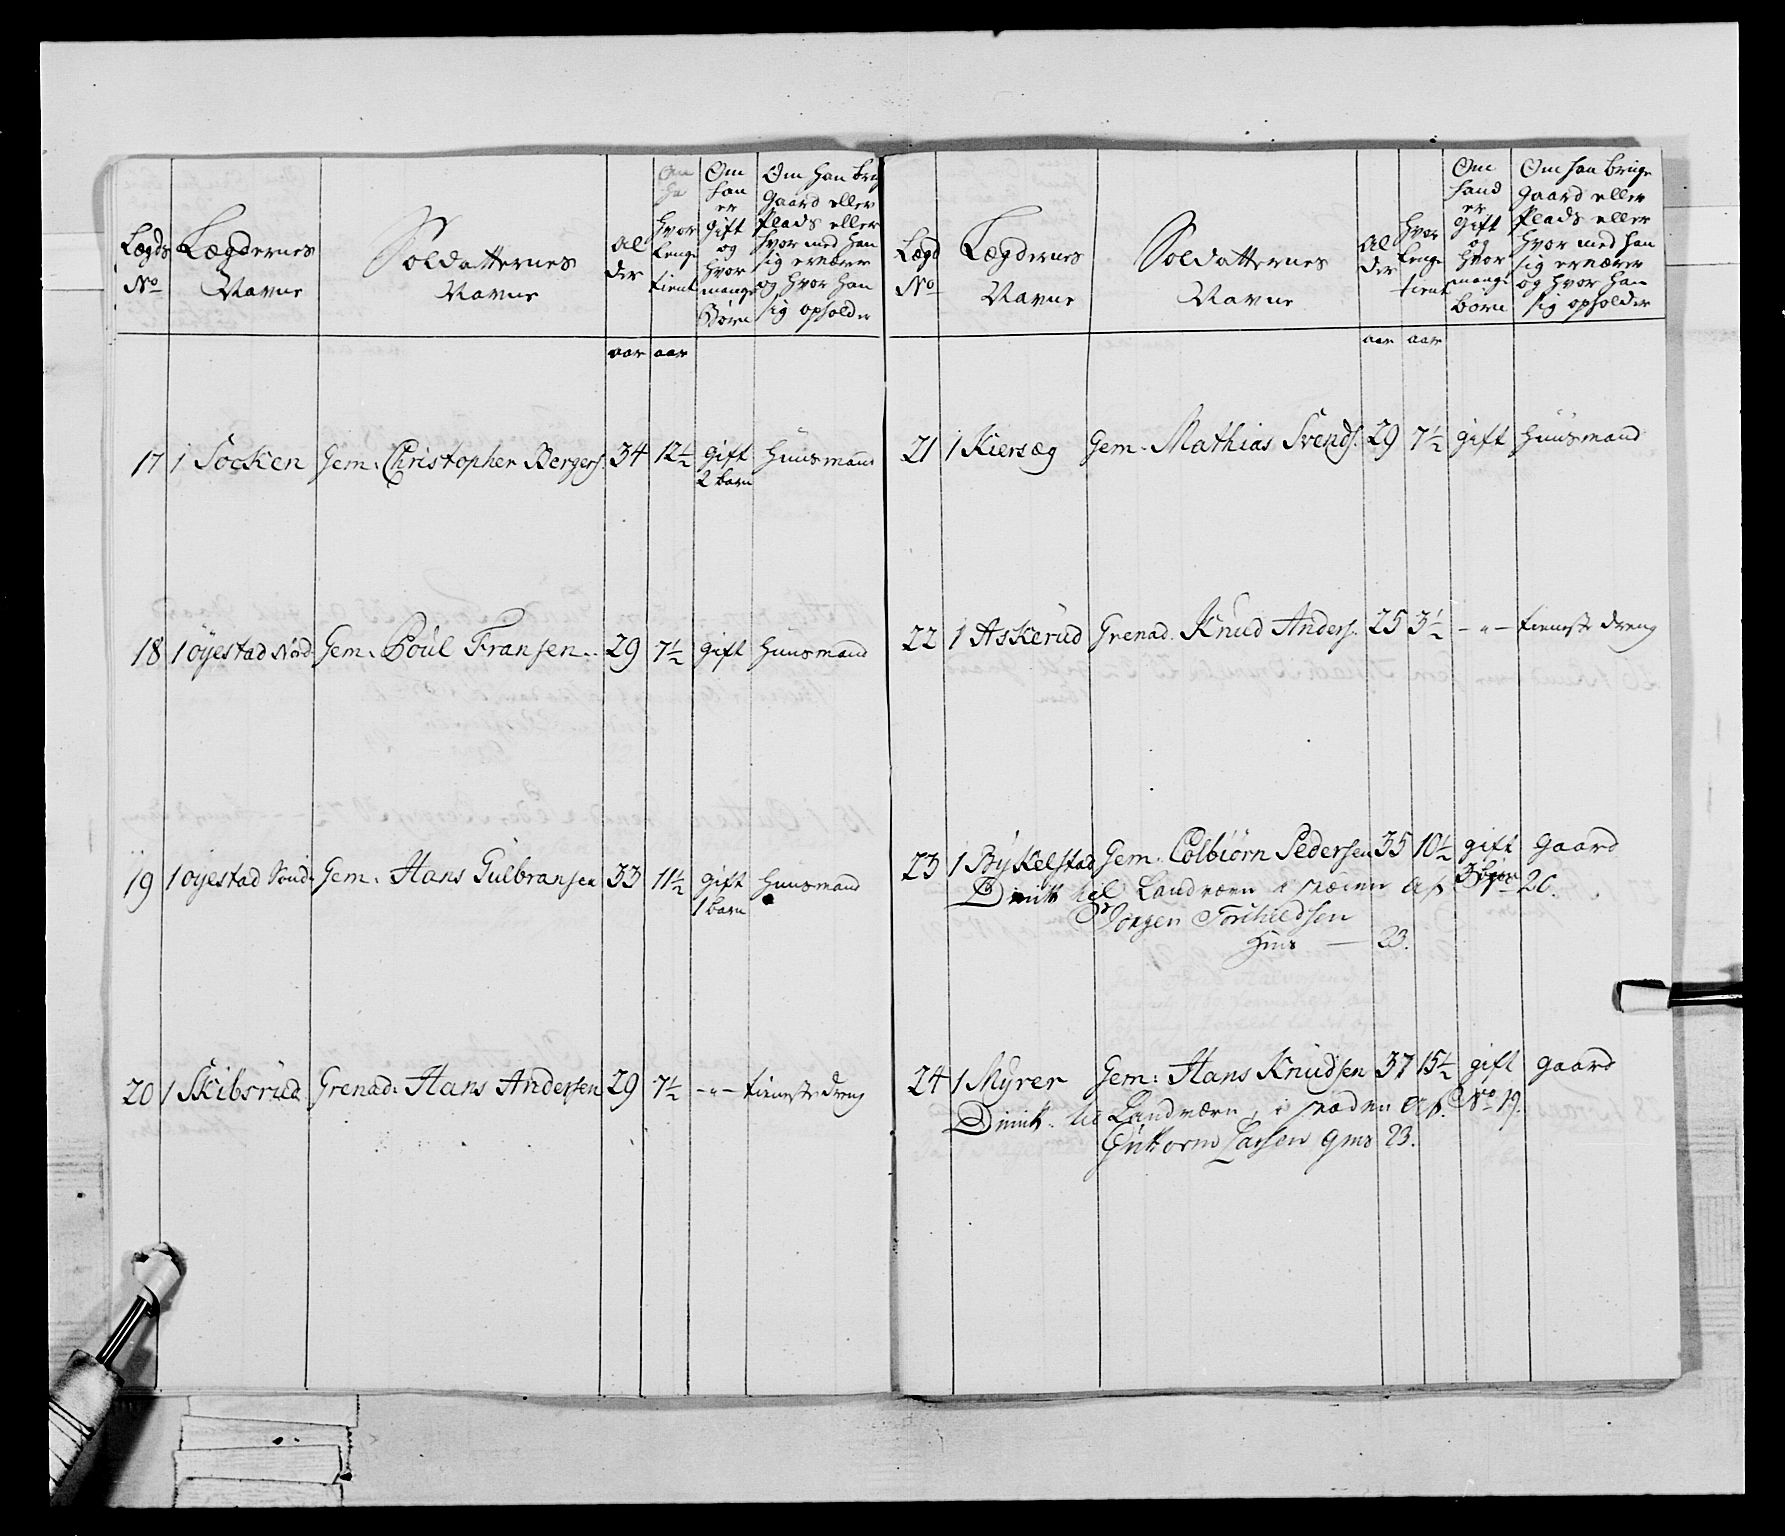 Lægds
No
Lægdernes
Navne
Soldatternes
Navne
Al
der
Hvor
lenge
tient
Om
han
er
gift
og
hvor
mange
Børn
Om han brug
gaard eller
Plads eller
hvor med han
sig ernærer
og hvor han
sig opholder
aar aar
17 1 Socken Gem. Christopher Bergers. 34 12½ gift Huusmand
2 børn
18 1 øyestad Nød Gem. Poul Fransen 29 7½ gift Huusmand
19 1 øyestad Sønd. Gem. Hans Gulbransen 33 11½ gift Huusmand
1 barn
20 1 Skibsrud Grenad. Hans Andersen 29 7½ -"- tieneste dreng
Lægd
No
Lægdernes
Navne
Soldatternes
Navne
Al
der
Hvor
lenge
tient
Om
hand
er
gift
og
hvor
mange
børn
Om han bruge
gaard eller
Plads eller
hvor med han
sig ernærer
og hvor han
sig opholder
aar aar
21 1 Kiersæg Gem. Mathias Svends. 29 7½ gift Huusmand
22 1 Askerud Grenad. Knud Anders. 25 3½ -"- tieneste dreng
23 1 Bÿkelstad Gem. Colbiørn Pedersen 35 10½ gift gaard
Dimitt til Landværn i stæden af No 20.
Jørgen
23.
24 1 Mÿrer Gem: Hans Knudsen 37 15½ gift gaard
Dimitt. til Landværn, i stæden af No 19.
Guttorm Larsen 23.